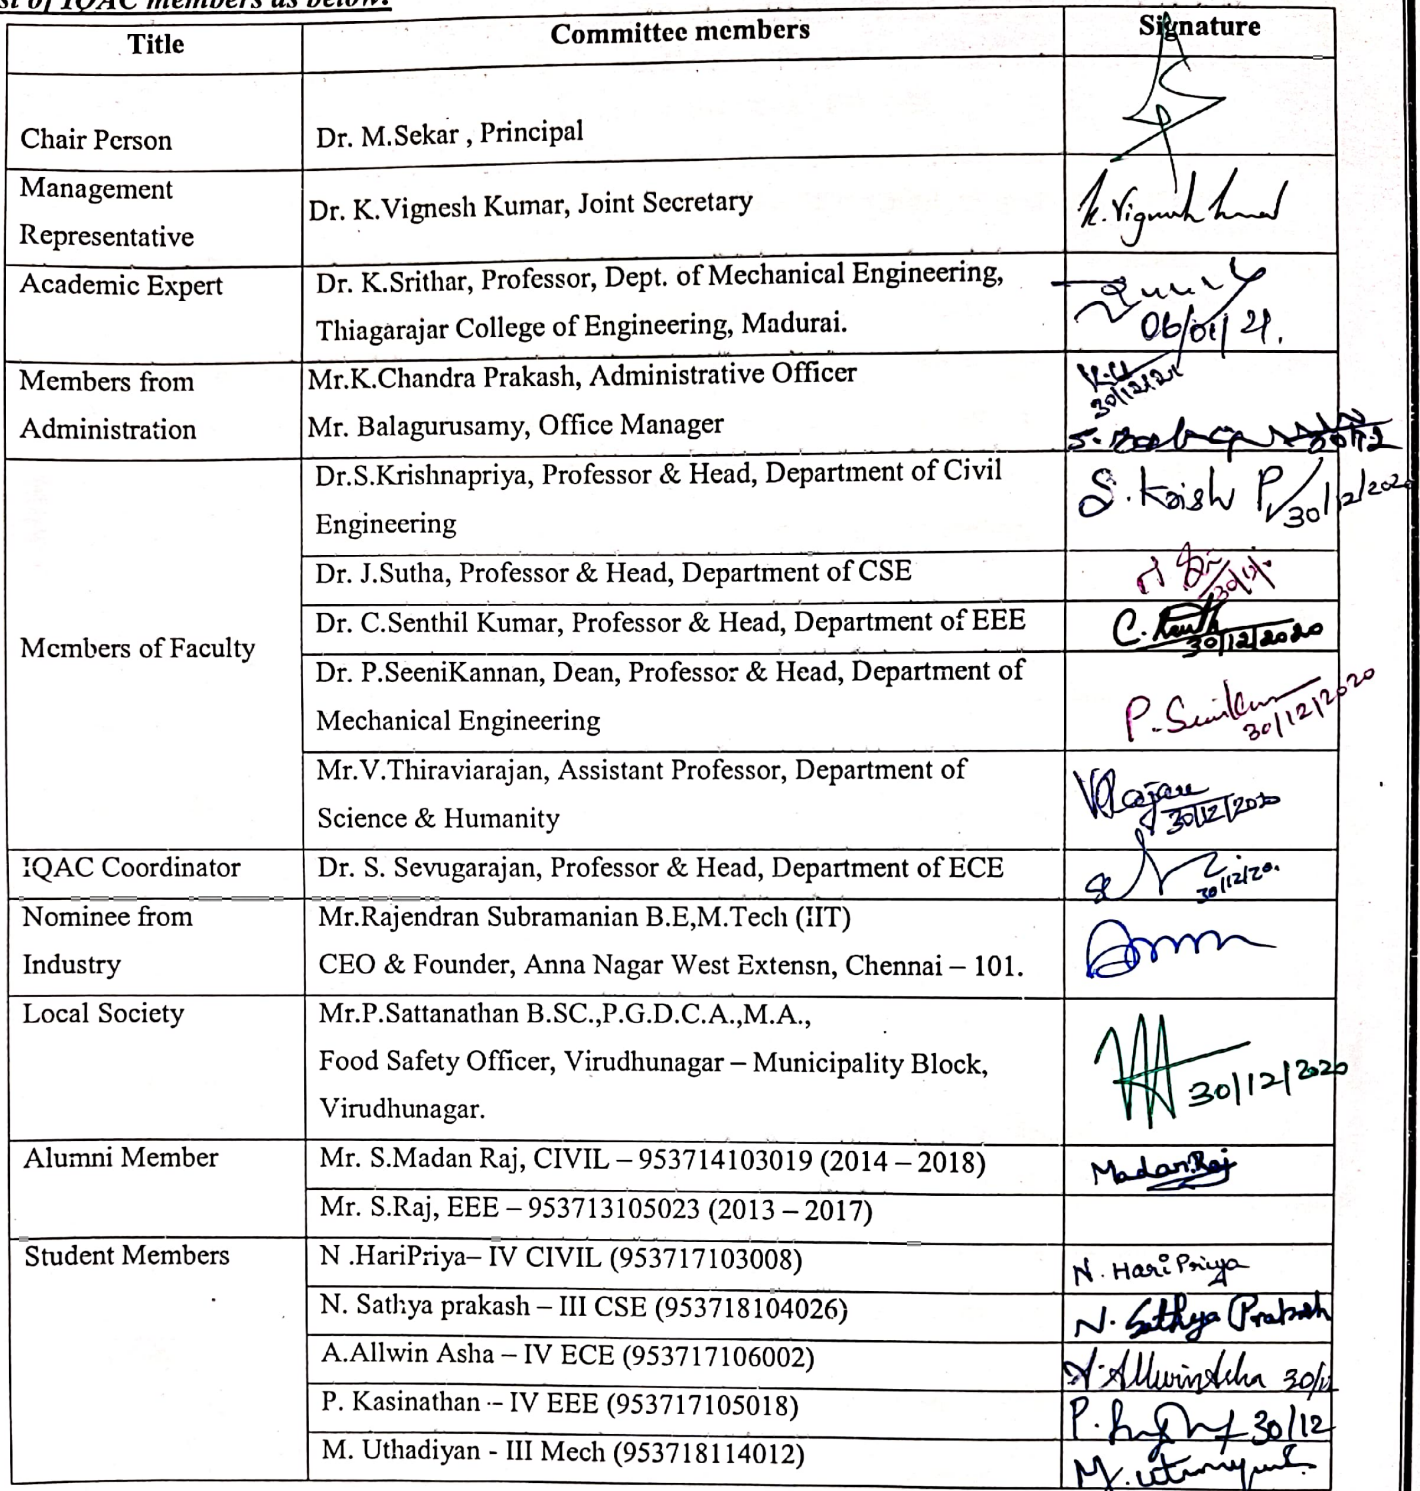 of IQAC members as below:
Title Committee members Signature
Chair Person Dr. M.Sekar , Principal
Management
Representative
Dr. K.Vignesh Kumar, Joint Secretary
K.Vignesh Kumar
Academic Expert Dr. K.Srithar, Professor, Dept. of Mechanical Engineering,
Thiagarajar College of Engineering, Madurai.
06/01/21.
Members from Mr.K.Chandra Prakash, Administrative Officer
30/12/2020
Administration Mr. Balagurusamy, Office Manager
30/12
Dr.S.Krishnapriya, Professor & Head, Department of Civil
Engineering
S.Krish P 30/12/2020
Dr. J.Sutha, Professor & Head, Department of CSE
Dr. C.Senthil Kumar, Professor & Head, Department of EEE
30/12/2020
Members of Faculty
Dr. P.SeeniKannan, Dean, Professor & Head, Department of
Mechanical Engineering
30/12/2020
Mr.V.Thiraviarajan, Assistant Professor, Department of
Science & Humanity
30/12/2020
IQAC Coordinator Dr. S. Sevugarajan, Professor & Head, Department of ECE
30/12/20.
Nominee from Mr.Rajendran Subramanian B.E,M.Tech (IIT)
Industry CEO & Founder, Anna Nagar West Extensn, Chennai – 101.
Local Society Mr.P.Sattanathan B.SC.,P.G.D.C.A.,M.A.,
Food Safety Officer, Virudhunagar – Municipality Block,
Virudhunagar.
30/12/2020
Alumni Member Mr. S.Madan Raj, CIVIL – 953714103019 (2014 – 2018) Madan.Raj
Mr. S.Raj, EEE – 953713105023 (2013 – 2017)
Student Members N .HariPriya– IV CIVIL (953717103008) N. Hari Priya
N. Sathya prakash – III CSE (953718104026) N. Sathya Prakash
A.Allwin Asha – IV ECE (953717106002) A.Allwin Asha 30/12
P. Kasinathan – IV EEE (953717105018) 30/12
M. Uthadiyan - III Mech (953718114012)